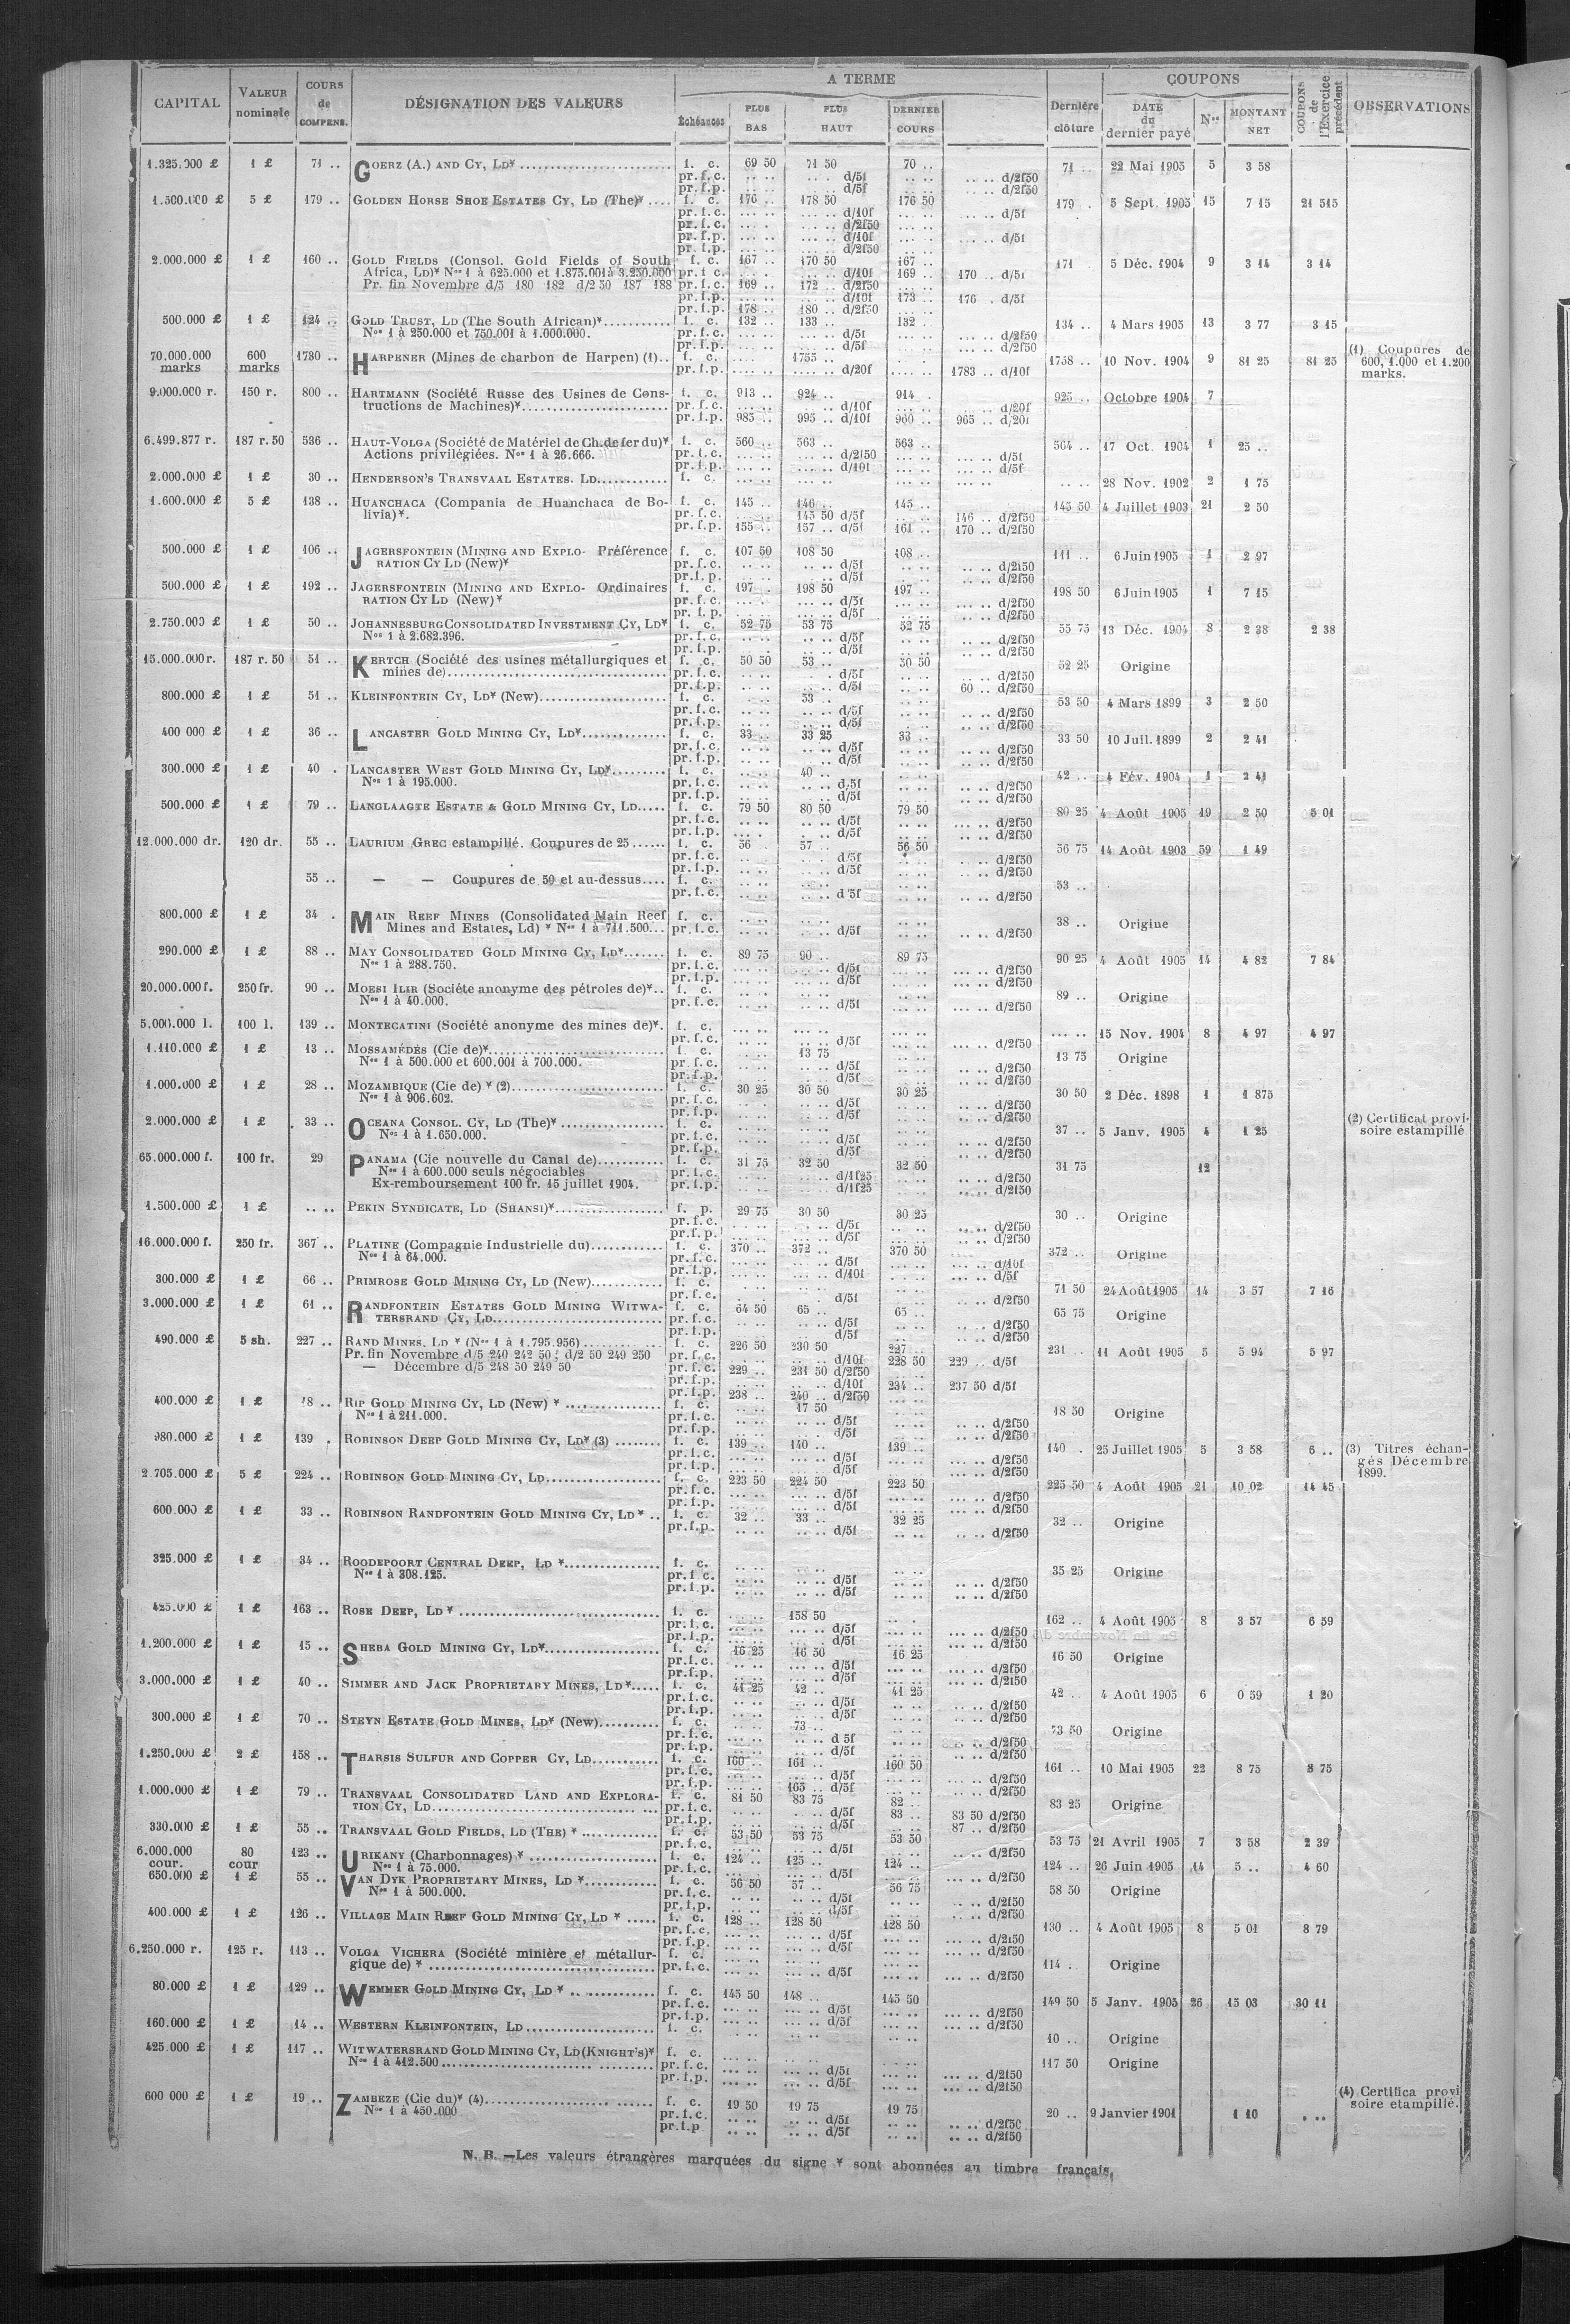 CAPITAL
VALEUR nominale
COURS de COMPENS.
DÉSIGNATION DES VALEURS
A TERME
Échéances
PLUS BAS
PLUS HAUT
DERNIER COURS
Dernière clôture
COUPONS
DATE du dernier payé
Nos
MONTANT NET
COUPONS de l'Exercice précédent
OBSERVATIONS
1.325.000 £ 1 £ 71 .. GOERZ (A.) AND CY, LD¥ f. c. 69 50 71 50 70 .. 71 .. 22 Mai 1905 5 3 58
pr. f. c. .. .. .. .. d/5f .. .. .. .. d/2f50
pr. f. p. .. .. .. .. d/5f .. .. .. .. d/2f50
1.500.000 £ 5 £ 179 .. GOLDEN HORSE SHOE ESTATES CY, LD (The)¥ .... f. c. 176 .. 178 50 176 50 179 . 5 Sept. 1905 15 7 15 21 515
pr. f. c. ... .. ... .. d/10f ... .. ... .. d/5f
pr. f. c. ... .. d/2f50
pr. f. p. ... .. d/10f ... .. d/5f
pr. f. p. ... .. d/2f50
2.000.000 £ 1 £ 160 .. GOLD FIELDS (Consol. Gold Fields of South f. c. 167 .. 170 50 167 .. 171 5 Déc. 1904 9 3 14 3 14
Africa, LD)¥ Nos 1 à 625.000 et 1.875.001 à 3.250.000 pr. f. c. d/10f 169 .. 170 .. d/5f
Pr. fin Novembre d/5 180 182 d/2 50 187 188 pr. f. c. 169 .. 172 .. d/2f50
pr. f. p. d/10f 173 .. 176 . d/5f
pr. f. p. 178 .. 180 .. d/2f50
500.000 £ 1 £ 124 .. GOLD TRUST, LD (The South African)¥ f. c. 132 .. 133 .. 132 . 134 .. 4 Mars 1905 13 3 77 3 15
Nos 1 à 250.000 et 750.001 à 1.000.000. pr. f. c. d/5f d/2f50
pr. f. p. d/5f d/2f50
70.000.000 marks 600 marks 1780 .. HARPENER (Mines de charbon de Harpen) (1).. f. c. 1755 .. 1758 .. 10 Nov. 1904 9 81 25 81 25 (1) Coupures de 600, 1.000 et 1.200 marks.
pr. f. p. d/20f 1783 .. d/10f
9.000.000 r. 150 r. 800 .. HARTMANN (Société Russe des Usines de Cons- f. c. 913 .. 924 .. 914 . 925 .. Octobre 1904 7
tructions de Machines)¥ pr. f. c. d/10f d/20f
pr. f. p. 985 .. 995 .. d/10f 960 .. 965 .. d/20f
6.499.877 r. 187 r. 50 536 .. HAUT-VOLGA (Société de Matériel de Ch. de fer du)¥ f. c. 560 .. 563 .. 563 .. 564 .. 17 Oct. 1904 1 25 ..
Actions privilégiées. Nos 1 à 26.666. pr. f. c. d/2f50 d/5f
pr. f. p. d/10f d/5f
2.000.000 £ 1 £ 30 .. HENDERSON'S TRANSVAAL ESTATES. LD f. c. 28 Nov. 1902 2 1 75
1.600.000 £ 5 £ 138 .. HUANCHACA (Compania de Huanchaca de Bo- f. c. 145 .. 146 .. 145 .. 145 50 4 Juillet 1903 21 2 50
livia)¥. pr. f. c. 145 50 d/5f 146 .. d/2f50
pr. f. p. 155 .. 157 .. d/5f 161 .. 170 .. d/2f50
500.000 £ 1 £ 106 .. JAGERSFONTEIN (MINING AND EXPLO- Préférence f. c. 107 50 108 50 108 .. 111 .. 6 Juin 1905 1 2 97
RATION CY LD (New)¥ pr. f. c. d/5f d/2f50
pr. f. p. d/5f d/2f50
500.000 £ 1 £ 192 .. JAGERSFONTEIN (MINING AND EXPLO- Ordinaires f. c. 197 . 198 50 197 .. 198 50 6 Juin 1905 1 7 15
RATION CY LD (New)¥ pr. f. c. d/5f d/2f50
pr. f. p. d/5f d/2f50
2.750.000 £ 1 £ 50 .. JOHANNESBURG CONSOLIDATED INVESTMENT CY, LD¥ f. c. 52 75 53 75 52 75 55 75 13 Déc. 1904 8 2 38 2 38
Nos 1 à 2.682.396. pr. f. c. d/5f d/2f50
pr. f. p. d/5f d/2f50
15.000.000 r. 187 r. 50 51 .. KERTCH (Société des usines métallurgiques et f. c. 50 50 53 .. 50 50 52 25 Origine
mines de) pr. f. c. d/5f d/2f50
pr. f. p. d/5f 60 .. d/2f50
800.000 £ 1 £ 51 .. KLEINFONTEIN CY, LD¥ (New) f. c. 53 .. 53 50 4 Mars 1899 3 2 50
pr. f. c. d/5f d/2f50
pr. f. p. d/5f d/2f50
400 000 £ 1 £ 36 .. LANCASTER GOLD MINING CY, LD¥ f. c. 33 .. 33 25 33 .. 33 50 10 Juil. 1899 2 2 41
pr. f. c. d/5f d/2f50
pr. f. p. d/5f d/2f50
300.000 £ 1 £ 40 . LANCASTER WEST GOLD MINING CY, LD¥ f. c. 40 .. 42 .. 4 Fév. 1904 1 2 41
Nos 1 à 195.000. pr. f. c. d/5f d/2f50
pr. f. p. d/5f d/2f50
500.000 £ 1 £ 79 .. LANGLAAGTE ESTATE & GOLD MINING CY, LD f. c. 79 50 80 50 79 50 80 25 4 Août 1905 19 2 50 5 01
pr. f. c. d/5f d/2f50
pr. f. p. d/5f d/2f50
12.000.000 dr. 120 dr. 55 .. LAURIUM GREC estampillé. Coupures de 25 f. c. 56 . 57 .. 56 50 56 75 14 Août 1903 59 1 49
pr. f. c. d/5f d/2f50
pr. f. p. d/5f d/2f50
55 .. — — Coupures de 50 et au-dessus f. c. 53 ..
pr. f. c. d 5f d/2f50
800.000 £ 1 £ 34 . MAIN REEF MINES (Consolidated Main Reef f. c. 38 .. Origine
Mines and Estates, Ld) ¥ Nos 1 à 711.500 pr. f. c. d/5f d/2f50
290.000 £ 1 £ 88 .. MAY CONSOLIDATED GOLD MINING CY, LD¥ f. c. 89 75 90 .. 89 75 90 25 4 Août 1905 14 4 82 7 84
Nos 1 à 288.750. pr. f. c. d/5f d/2f50
pr. f. p. d/5f d/2f50
20.000.000 f. 250 fr. 90 .. MOESI ILIR (Société anonyme des pétroles de)¥.. f. c. 89 .. Origine
Nos 1 à 40.000. pr. f. c. d/5f d/2f50
5.000.000 l. 100 l. 139 .. MONTECATINI (Société anonyme des mines de)¥. f. c. 15 Nov. 1904 8 4 97 4 97
pr. f. c. d/5f d/2f50
1.110.000 £ 1 £ 13 .. MOSSAMÉDÈS (Cie de)¥ f. c. 13 75 13 75 Origine
Nos 1 à 500.000 et 600.001 à 700.000. pr. f. c. d/5f d/2f50
pr. f. p. d/5f d/2f50
1.000.000 £ 1 £ 28 .. MOZAMBIQUE (Cie de) ¥ (2) f. c. 30 25 30 50 30 25 30 50 2 Déc. 1898 1 1 875
Nos 1 à 906.602. pr. f. c. d/5f d/2f50
pr. f. p. d/5f d/2f50
2.000.000 £ 1 £ 33 .. OCEANA CONSOL. CY, LD (The)¥ f. c. 37 .. 5 Janv. 1905 4 1 25 (2) Certificat provi- soire estampillé
Nos 1 à 1.650.000. pr. f. c. d/5f d/2f50
pr. f. p. d/5f d/2f50
65.000.000 f. 100 fr. 29 PANAMA (Cie nouvelle du Canal de) f. c. 31 75 32 50 32 50 31 75 12
Nos 1 à 600.000 seuls négociables pr. f. c. d/1f25 d/2f50
Ex-remboursement 100 fr. 15 juillet 1904. pr. f. p. d/1f25 d/2f50
1.500.000 £ 1 £ .. .. PEKIN SYNDICATE, LD (SHANSI)¥ f. p. 29 75 30 50 30 25 30 .. Origine
pr. f. c. d/5f d/2f50
pr. f. p. d/5f d/2f50
16.000.000 f. 250 fr. 367 .. PLATINE (Compagnie Industrielle du) f. c. 370 .. 372 .. 370 50 372 .. Origine
Nos 1 à 64.000. pr. f. c. d/5f d/10f
pr. f. p. d/10f d/5f
300.000 £ 1 £ 66 .. PRIMROSE GOLD MINING CY, LD (New) f. c. 71 50 24 Août 1905 14 3 57 7 16
pr. f. c. d/5f d/2f50
3.000.000 £ 1 £ 61 .. RANDFONTEIN ESTATES GOLD MINING WITWA- f. c. 64 50 65 .. 65 .. 65 75 Origine
TERSRAND CY, LD pr. f. c. d/5f d/2f50
pr. f. p. d/5f d/2f50
490.000 £ 5 sh. 227 .. RAND MINES, LD ¥ (Nos 1 à 1.795.956) f. c. 226 50 230 50 227 .. 231 .. 11 Août 1905 5 5 94 5 97
Pr. fin Novembre d/5 240 242 50; d/2 50 249 250 pr. f. c. d/10f 228 50 229 .. d/5f
— Décembre d/5 248 50 249 50 pr. f. c. 229 .. 231 50 d/2f50
pr. f. p. d/10f 234 .. 237 50 d/5f
pr. f. p. 238 .. 240 .. d/2f50
400.000 £ 1 £ 18 .. RIP GOLD MINING CY, LD (New) ¥ f. c. 17 50 18 50 Origine
Nos 1 à 211.000. pr. f. c. d/5f d/2f50
pr. f. p. d/5f d/2f50
980.000 £ 1 £ 139 . ROBINSON DEEP GOLD MINING CY, LD¥ (3) f. c. 139 .. 140 .. 139 .. 140 . 25 Juillet 1905 5 3 58 6 .. (3) Titres échan- gés Décembre 1899.
pr. f. c. d/5f d/2f50
pr. f. p. d/5f d/2f50
2.705.000 £ 5 £ 224 .. ROBINSON GOLD MINING CY, LD f. c. 223 50 224 50 223 50 225 50 4 Août 1905 21 10 02 14 45
pr. f. c. d/5f d/2f50
pr. f. p. d/5f d/2f50
600.000 £ 1 £ 33 .. ROBINSON RANDFONTEIN GOLD MINING CY, LD ¥ .. f. c. 32 .. 33 .. 32 25 32 .. Origine
pr. f. p. d/5f d/2f50
325.000 £ 1 £ 34 .. ROODEPOORT CENTRAL DEEP, LD ¥ f. c. 35 25 Origine
Nos 1 à 308.125. pr. f. c. d/5f d/2f50
pr. f. p. d/5f d/2f50
425.000 £ 1 £ 163 .. ROSE DEEP, LD ¥ f. c. 158 50 162 .. 4 Août 1905 8 3 57 6 59
pr. f. c. d/5f d/2f50
pr. f. p. d/5f d/2f50
1.200.000 £ 1 £ 15 .. SHEBA GOLD MINING CY, LD¥ f. c. 16 25 16 50 16 25 16 50 Origine
pr. f. c. d/5f d/2f50
pr. f. p. d/5f d/2f50
3.000.000 £ 1 £ 40 .. SIMMER AND JACK PROPRIETARY MINES, LD¥ f. c. 41 25 42 .. 41 25 42 .. 4 Août 1905 6 0 59 1 20
pr. f. c. d/5f d/2f50
pr. f. p. d/5f d/2f50
300.000 £ 1 £ 70 .. STEYN ESTATE GOLD MINES, LD¥ (New) f. c. 73 .. 73 50 Origine
pr. f. c. d 5f d/2f50
pr. f. p. d/5f d/2f50
1.250.000 £ 2 £ 158 .. THARSIS SULFUR AND COPPER CY, LD f. c. 160 .. 161 .. 160 50 161 .. 10 Mai 1905 22 8 75 8 75
pr. f. c. d/5f d/2f50
pr. f. p. 165 .. d/5f d/2f50
1.000.000 £ 1 £ 79 .. TRANSVAAL CONSOLIDATED LAND AND EXPLORA- f. c. 81 50 83 75 82 .. 83 25 Origine
TION CY, LD pr. f. c. d/5f 83 .. 83 50 d/2f50
pr. f. p. d/5f 87 .. d/2f50
330.000 £ 1 £ 55 .. TRANSVAAL GOLD FIELDS, LD (THE) ¥ f. c. 53 50 53 75 53 50 53 75 21 Avril 1905 7 3 58 2 39
pr. f. c. d/5f d/2f50
6.000.000 cour. 80 cour 123 .. URIKANY (Charbonnages) ¥ f. c. 124 .. 125 .. 124 .. 124 .. 26 Juin 1905 14 5 .. 4 60
Nos 1 à 75.000. pr. f. c. d/5f d/2f50
650.000 £ 1 £ 55 .. VAN DYK PROPRIETARY MINES, LD ¥ f. c. 56 50 57 .. 56 75 58 50 Origine
Nos 1 à 500.000. pr. f. c. d/5f d/2f50
pr. f. p. d/5f d/2f50
400.000 £ 1 £ 126 .. VILLAGE MAIN REEF GOLD MINING CY, LD ¥ f. c. 128 .. 128 50 128 50 130 .. 4 Août 1905 8 5 01 8 79
pr. f. c. d/5f d/2f50
pr. f. p. d/5f d/2f50
6.250.000 r. 125 r. 113 .. VOLGA VICHERA (Société minière et métallur- f. c. 114 .. Origine
gique de) ¥ pr. f. c. d/5f d/2f50
80.000 £ 1 £ 129 .. WEMMER GOLD MINING CY, LD ¥ f. c. 145 50 148 .. 145 50 149 50 5 Janv. 1905 26 15 03 30 11
pr. f. c. d/5f d/2f50
pr. f. p. d/5f d/2f50
160.000 £ 1 £ 14 .. WESTERN KLEINFONTEIN, LD f. c. 10 .. Origine
425.000 £ 1 £ 117 .. WITWATERSRAND GOLD MINING CY, LD (KNIGHT'S)¥ f. c. 117 50 Origine
Nos 1 à 412.500 pr. f. c. d/5f d/2f50
pr. f. p. d/5f d/2f50
600 000 £ 1 £ 19 .. ZAMBEZE (Cie du)¥ (4) f. c. 19 50 19 75 19 75 20 .. 9 Janvier 1901 1 10 (4) Certifica provi soire etampillé.
Nos 1 à 450.000 pr. f. c. d/5f d/2f50
pr. f. p d/5f d/2f50
N. B. —Les valeurs étrangères marquées du signe ¥ sont abonnées au timbre français.